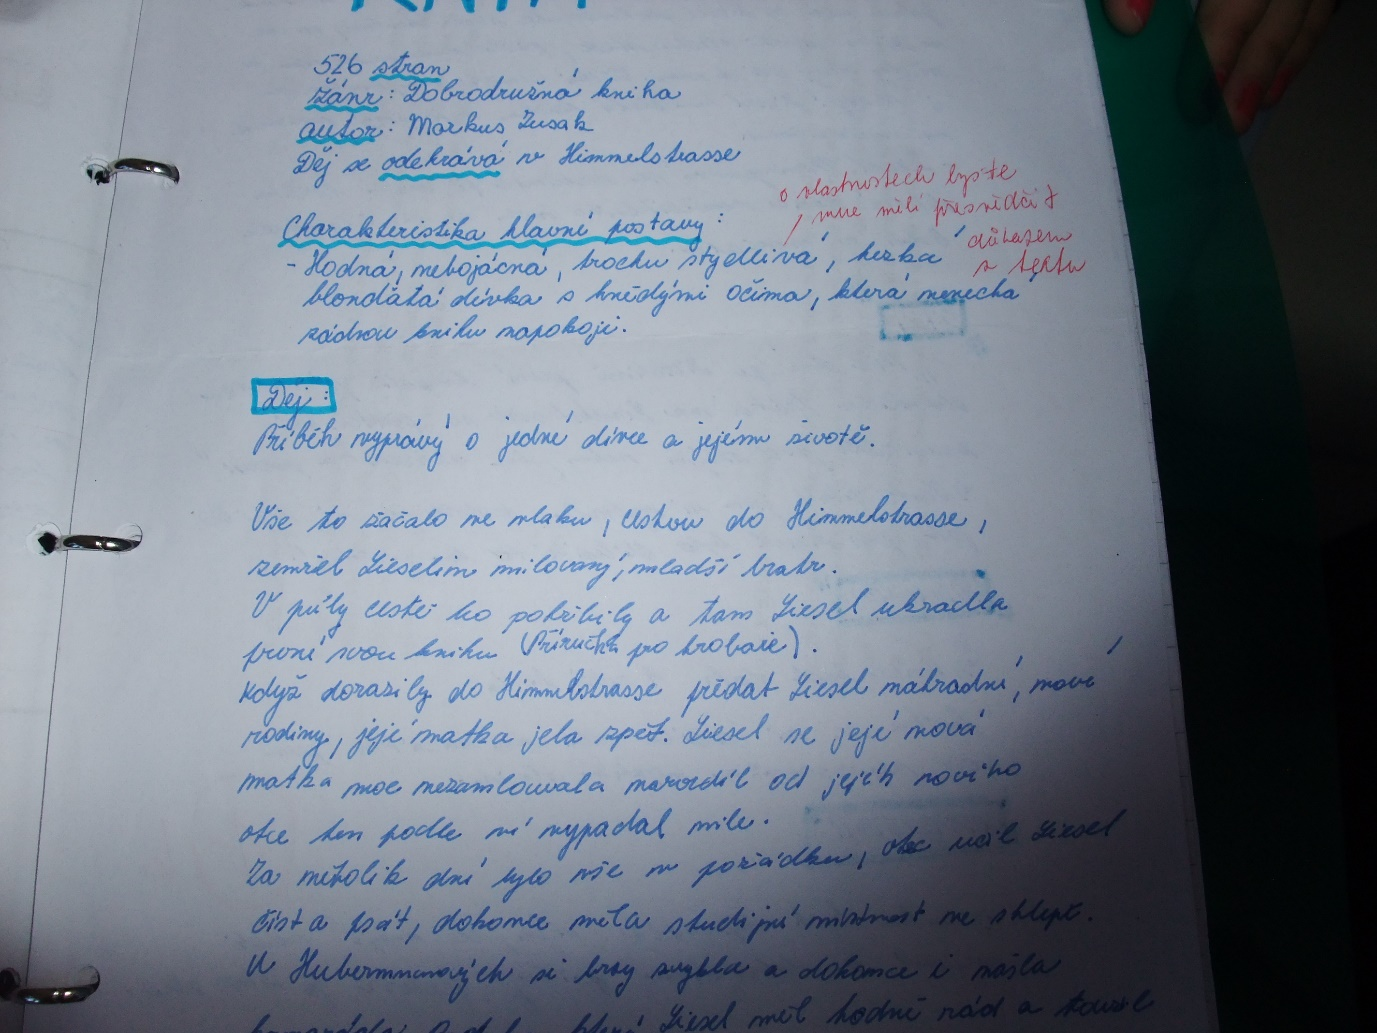 526 stran
žánr: Dobrodružná kniha
autor: Markus Zusak
Děj se odehrává v Himmelstrasse
o vlastnostech byste
mne měli přesvědčit
důkazem
z textu
Charakteristika hlavní postavy:
- Hodná, nebojácná, trochu stydlivá, hezká
blonďatá dívka s hnědými očima, která nenechá
žádnou knihu napokoji.
Děj:
Příběh vypravý o jedné dívce a jejém životě.
Vše to začalo ve vlaku, cestou do Himmelstrasse,
zemřel Lieselin milovaný, mladší bratr.
V půly cestě ho pohřbily a tam Liesel ukradla
první svou knihu (Příručka pro hrobaře).
Když dorazily do Himmelstrasse předat Liesel náhradní, nové
rodiny, její matka jela zpět. Liesel se její nová
matka moc nezamlouvala narozdíl od jejích nového
otce ten podle ní vypadal mile.
Za několik dní bylo vše v pořádku, otec učil Liesel
číst a psát, dokonce měla studijní místnost ve sklepě.
U Hubermanových si brzy zvykla a dokonce i našla
Liesel měl hodně rád a toužil